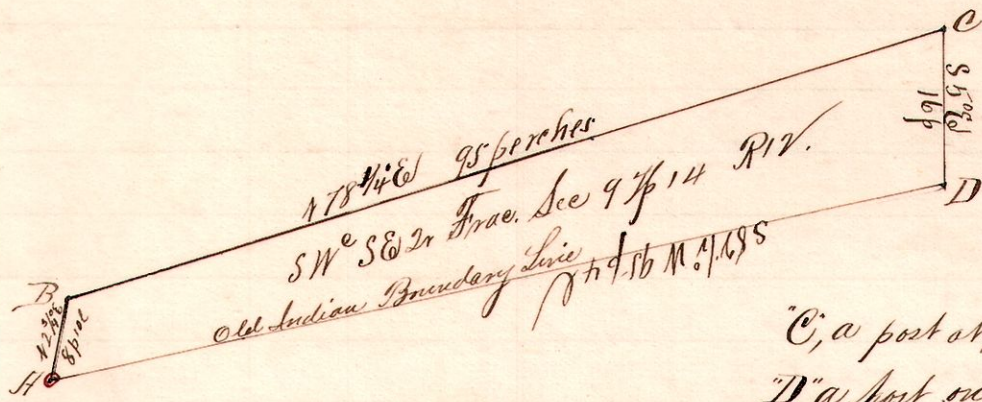 C
S 5° E
16 p
N 78 1/4° E 95 perches
SW c SE qr Frac. Sec 9 Tp 14 R 12.
D
Old Indian Boundary Line
W 95 p 4
B
N 2 3/4° E
8 p
"C", a post at
"D" a post on